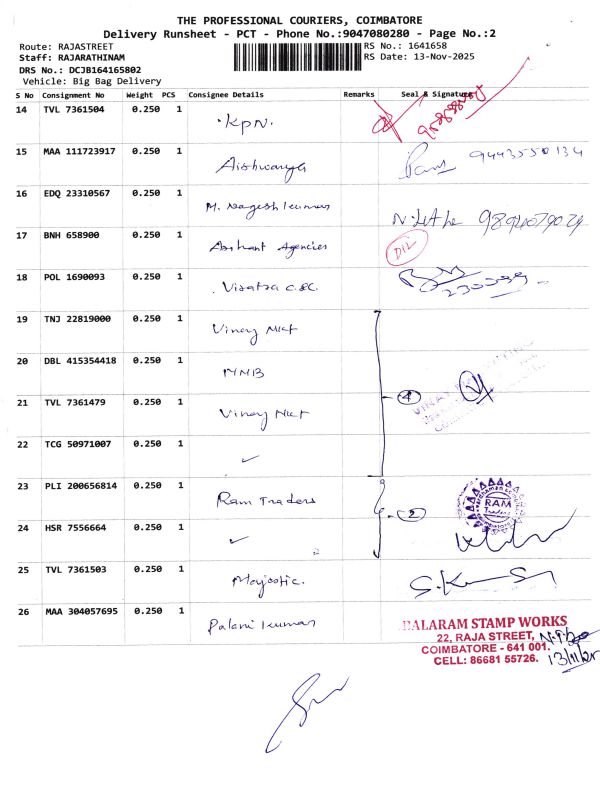 THE PROFESSIONAL COURIERS, COIMBATORE
Delivery Runsheet - PCT - Phone No.:9047080280 - Page No.:2
Route: RAJASTREET
RS No.: 1641658
Staff: RAJARATHINAM
RS Date: 13-Nov-2025
DRS No.: DCJB164165802
Vehicle: Big Bag Delivery
S No Consignment No Weight PCS Consignee Details Remarks Seal & Signature
14 TVL 7361504 0.250 1 KPN.
15 MAA 111723917 0.250 1 Aishwarya 9443550134
16 EDQ 23310567 0.250 1 M. Nageshkumar
17 BNH 658900 0.250 1 Agencies D12
18 POL 1690093 0.250 1
19 TNJ 22819000 0.250 1 Vinay Mkt
20 DBL 415354418 0.250 1 MNB
21 TVL 7361479 0.250 1 Vinay Mkt 4
22 TCG 50971007 0.250 1 ✓
23 PLI 200656814 0.250 1 Ram Traders 2 RAM
24 HSR 7556664 0.250 1 ✓
25 TVL 7361503 0.250 1
26 MAA 304057695 0.250 1 Palani kumar
BALARAM STAMP WORKS
22, RAJA STREET,
COIMBATORE - 641 001.
CELL: 86681 55726. 13/11/25